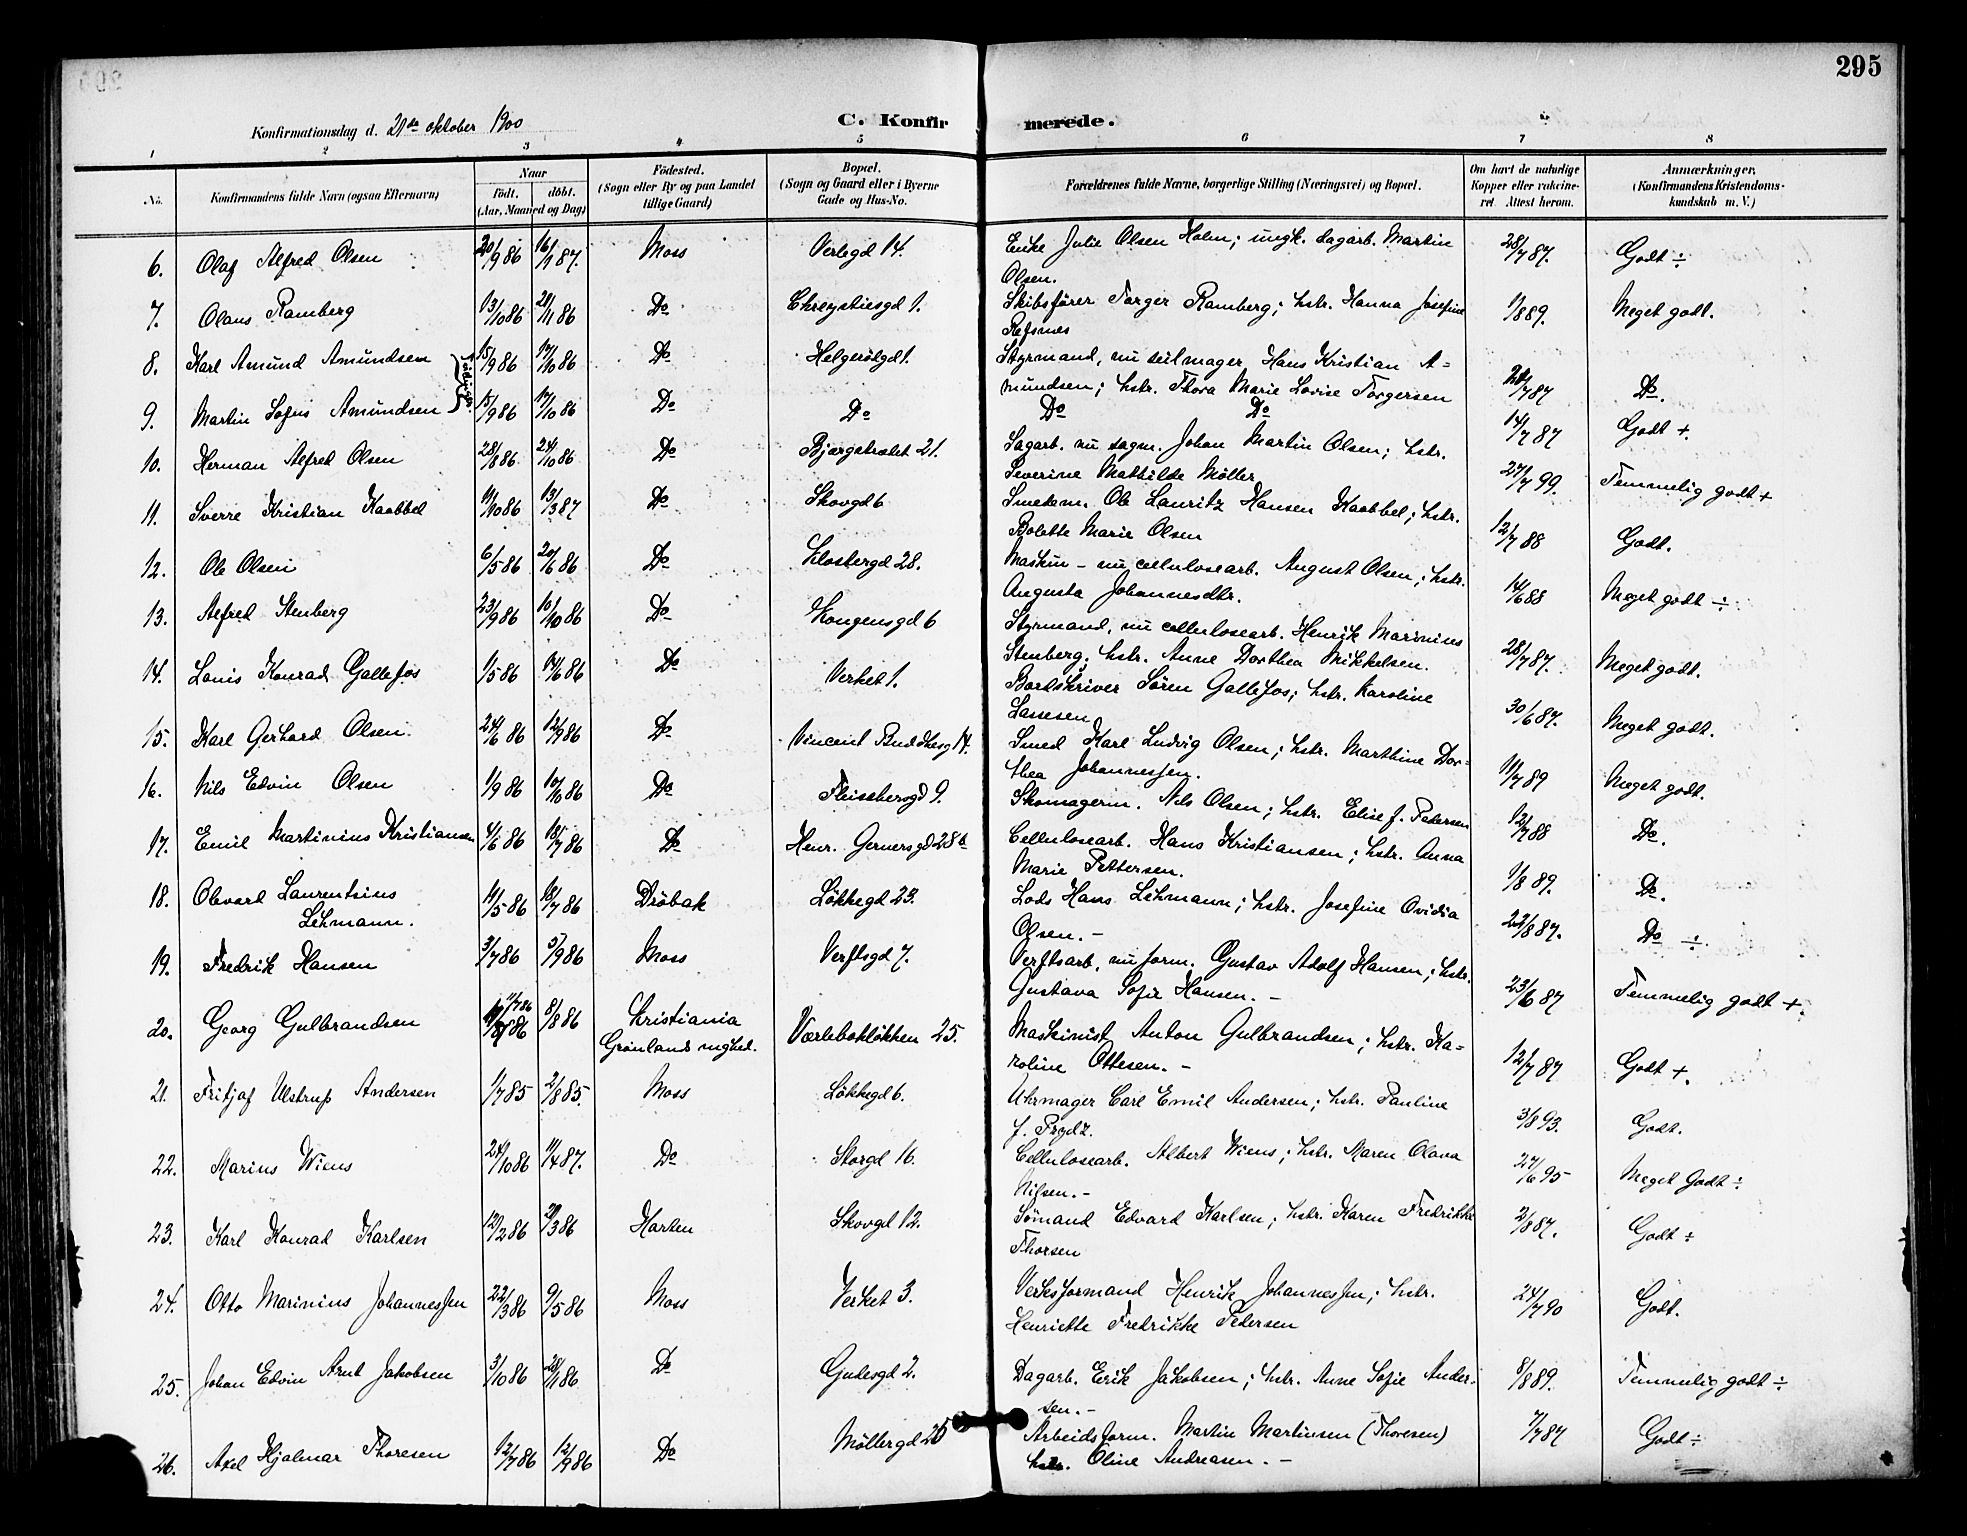 295
Konfirmationsdag d. 21de oktober 1900
C. Konfirmerede.
1 2 3 4 5 6 7 8
No. Konfirmandens fulde Navn (ogsaa Efternavn) Naar födt. döbt. (Aar, Maaned og Dag) Födested. (Sogn eller By og paa Landet tillige Gaard) Bopæl. (Sogn og Gaard eller i Byerne Gade og Hus-No. Forældrenes fulde Navne, borgerlige Stilling (Næringsvei) og Bopæl. Om havt de naturlige Kopper eller vakcineret. Attest herom. Anmærkninger. (Konfirmandens Kristendomskundskab m. V.)
6. Olaf Alfred Olsen 20/9 86 16/1 87. Moss Verlegd 14. Enke Julie Olsen Holm; ungk. dagarb. Martin 28/7 87. Godt ÷
Olsen.
7. Olaus Ramberg 13/10 86 21/11 86 Do Chrystiesgd 1. Skibsfører Torger Ramberg; hstr. Hanna Josefine 1/8 89. Meget godt.
Refsnes
8. Karl Amund Amundsen 15/9 86 17/10 86 Do Helgerödgd 1. Styrmand, nu seilmager Hans Kristian A=
mundsen; hstr. Thora Marie Lovise Torgersen 21/7 87 Do.
9. Martin Sofus Amundsen 15/9 86 17/10 86 Do Do Do Do 14/7 87 Godt +.
10. Herman Alfred Olsen 28/8 86 24/10 86 Do Bjørgstrædet 21. Sagarb. nu sagm. Johan Martin Olsen; hstr.
Severine Mathilde Møller 27/7 99. Temmelig godt +
11. Sverre Kristian Kaabbel 11/10 86 13/3 87 Do Skovgd 6 Smedem. Ole Lauritz Hansen Kaabbel; hstr.
Bolette Marie Olsen 12/7 88 Godt.
12. Ole Olsen 6/5 86 20/6 86 Do Klostergd 28. Maskin- nu cellulosearb. August Olsen; hstr.
Augusta Johannesdtr. 14/6 88 Meget godt ÷
13. Alfred Stenberg 23/9 86 10/10 86 Do Kongensgd 6 Styrmand, nu cellulosearb. Henrik Marinius
Stenberg; hstr. Anne Dorthea Mikkelsen. 28/7 87. Meget godt.
14. Louis Konrad Gallefos 1/5 86 14/6 86 Do Verket 1. Bordskriver Søren Gallefos; hstr. Karoline
Lassesen 30/6 87. Meget godt.
15. Karl Gerhard Olsen. 24/6 86 12/9 86 Do Vincent Buddesg 14. Smed Karl Ludvig Olsen; hstr. Marthine Dor=
thea Johannessen. 11/7 89 Meget godt.
16. Nils Edvin Olsen 1/9 86 10/10 86 Do Fleischersgd 9. Skomagerm. Nils Olsen; hstr. Elise f. Pedersen 12/7 88 Do.
17. Emil Martinius Kristiansen 4/6 86 18/7 86 Do Henr. Gernersgd 28b Cellulosearb. Hans Kristiansen; hstr. Anna
Marie Pettersen. 1/8 89. Do.
18. Olvard Laurentius 11/5 86 18/7 86 Drøbak Løkkegd 23. Lods Hans Lihmann; hstr. Josefine Ovidia
Lihmann. Olsen. - 22/8 87. Do ÷
19. Fredrik Hansen 3/7 86 5/9 86 Moss Verftsgd 7. Verftsarb. nu form. Gustav Adolf Hansen; hstr.
Gustava Sofie Hansen. - 23/6 87 Temmelig godt +.
20. Georg Gulbrandsen 11/7 86 8/8 86 Kristiania Værlebøkløkken 25. Maskinist Anton Gulbrandsen; hstr. Ka=
Grønlands mghed. roline Ottesen. - 12/7 87 Godt +.
21. Fritjof Ulstrup Andersen 1/7 85 2/8 85. Moss Løkkegd 6. Uhrmager Carl Emil Andersen; hstr. Pauline
f. Prydz. 3/8 93. Godt.
22. Marius Wiens 24/10 86 11/4 87. Do Storgd 16. Cellulosearb. Albert Wiens; hstr. Maren Olava
Nilsen. - 27/6 95 Meget Godt ÷
23. Karl Konrad Karlsen 12/2 86 21/3 86 Horten Skovgd 12. Sømand Edvard Karlsen; hstr. Karen Fredrikke 2/8 87. Godt ÷
Thorsen
24. Otto Marinius Johannessen 22/3 86 9/5 86 Moss Verket 3. Verksformand Henrik Johannessen; hstr.
Henriette Fredrikke Pedersen 24/7 90 Godt.
25. Johan Edvin Arnt Jakobsen 3/10 86 28/11 86 Do Gudesgd 2. Dagarb. Erik Jakobsen; hstr. Anne Sofie Ander= 8/8 89. Temmelig godt ÷
sen. -
26. Axel Hjalmar Thoresen 12/7 86 12/9 86 Do Møllergd 25 Arbeidsform. Martin Martinsen (Thoresen) 7/7 87 Godt ÷
hstr. Oline Andreasen. -